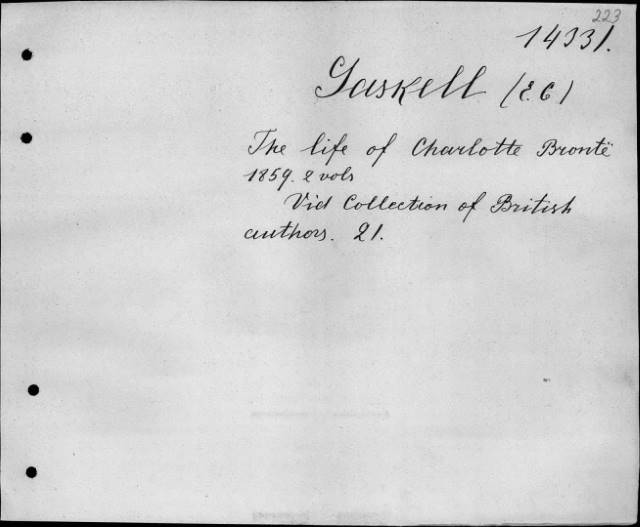 223
14331.
Gaskell (E. C)
The life of Charlotte Brontë
1859. 2 vols
Vid Collection of British
authors. 21.